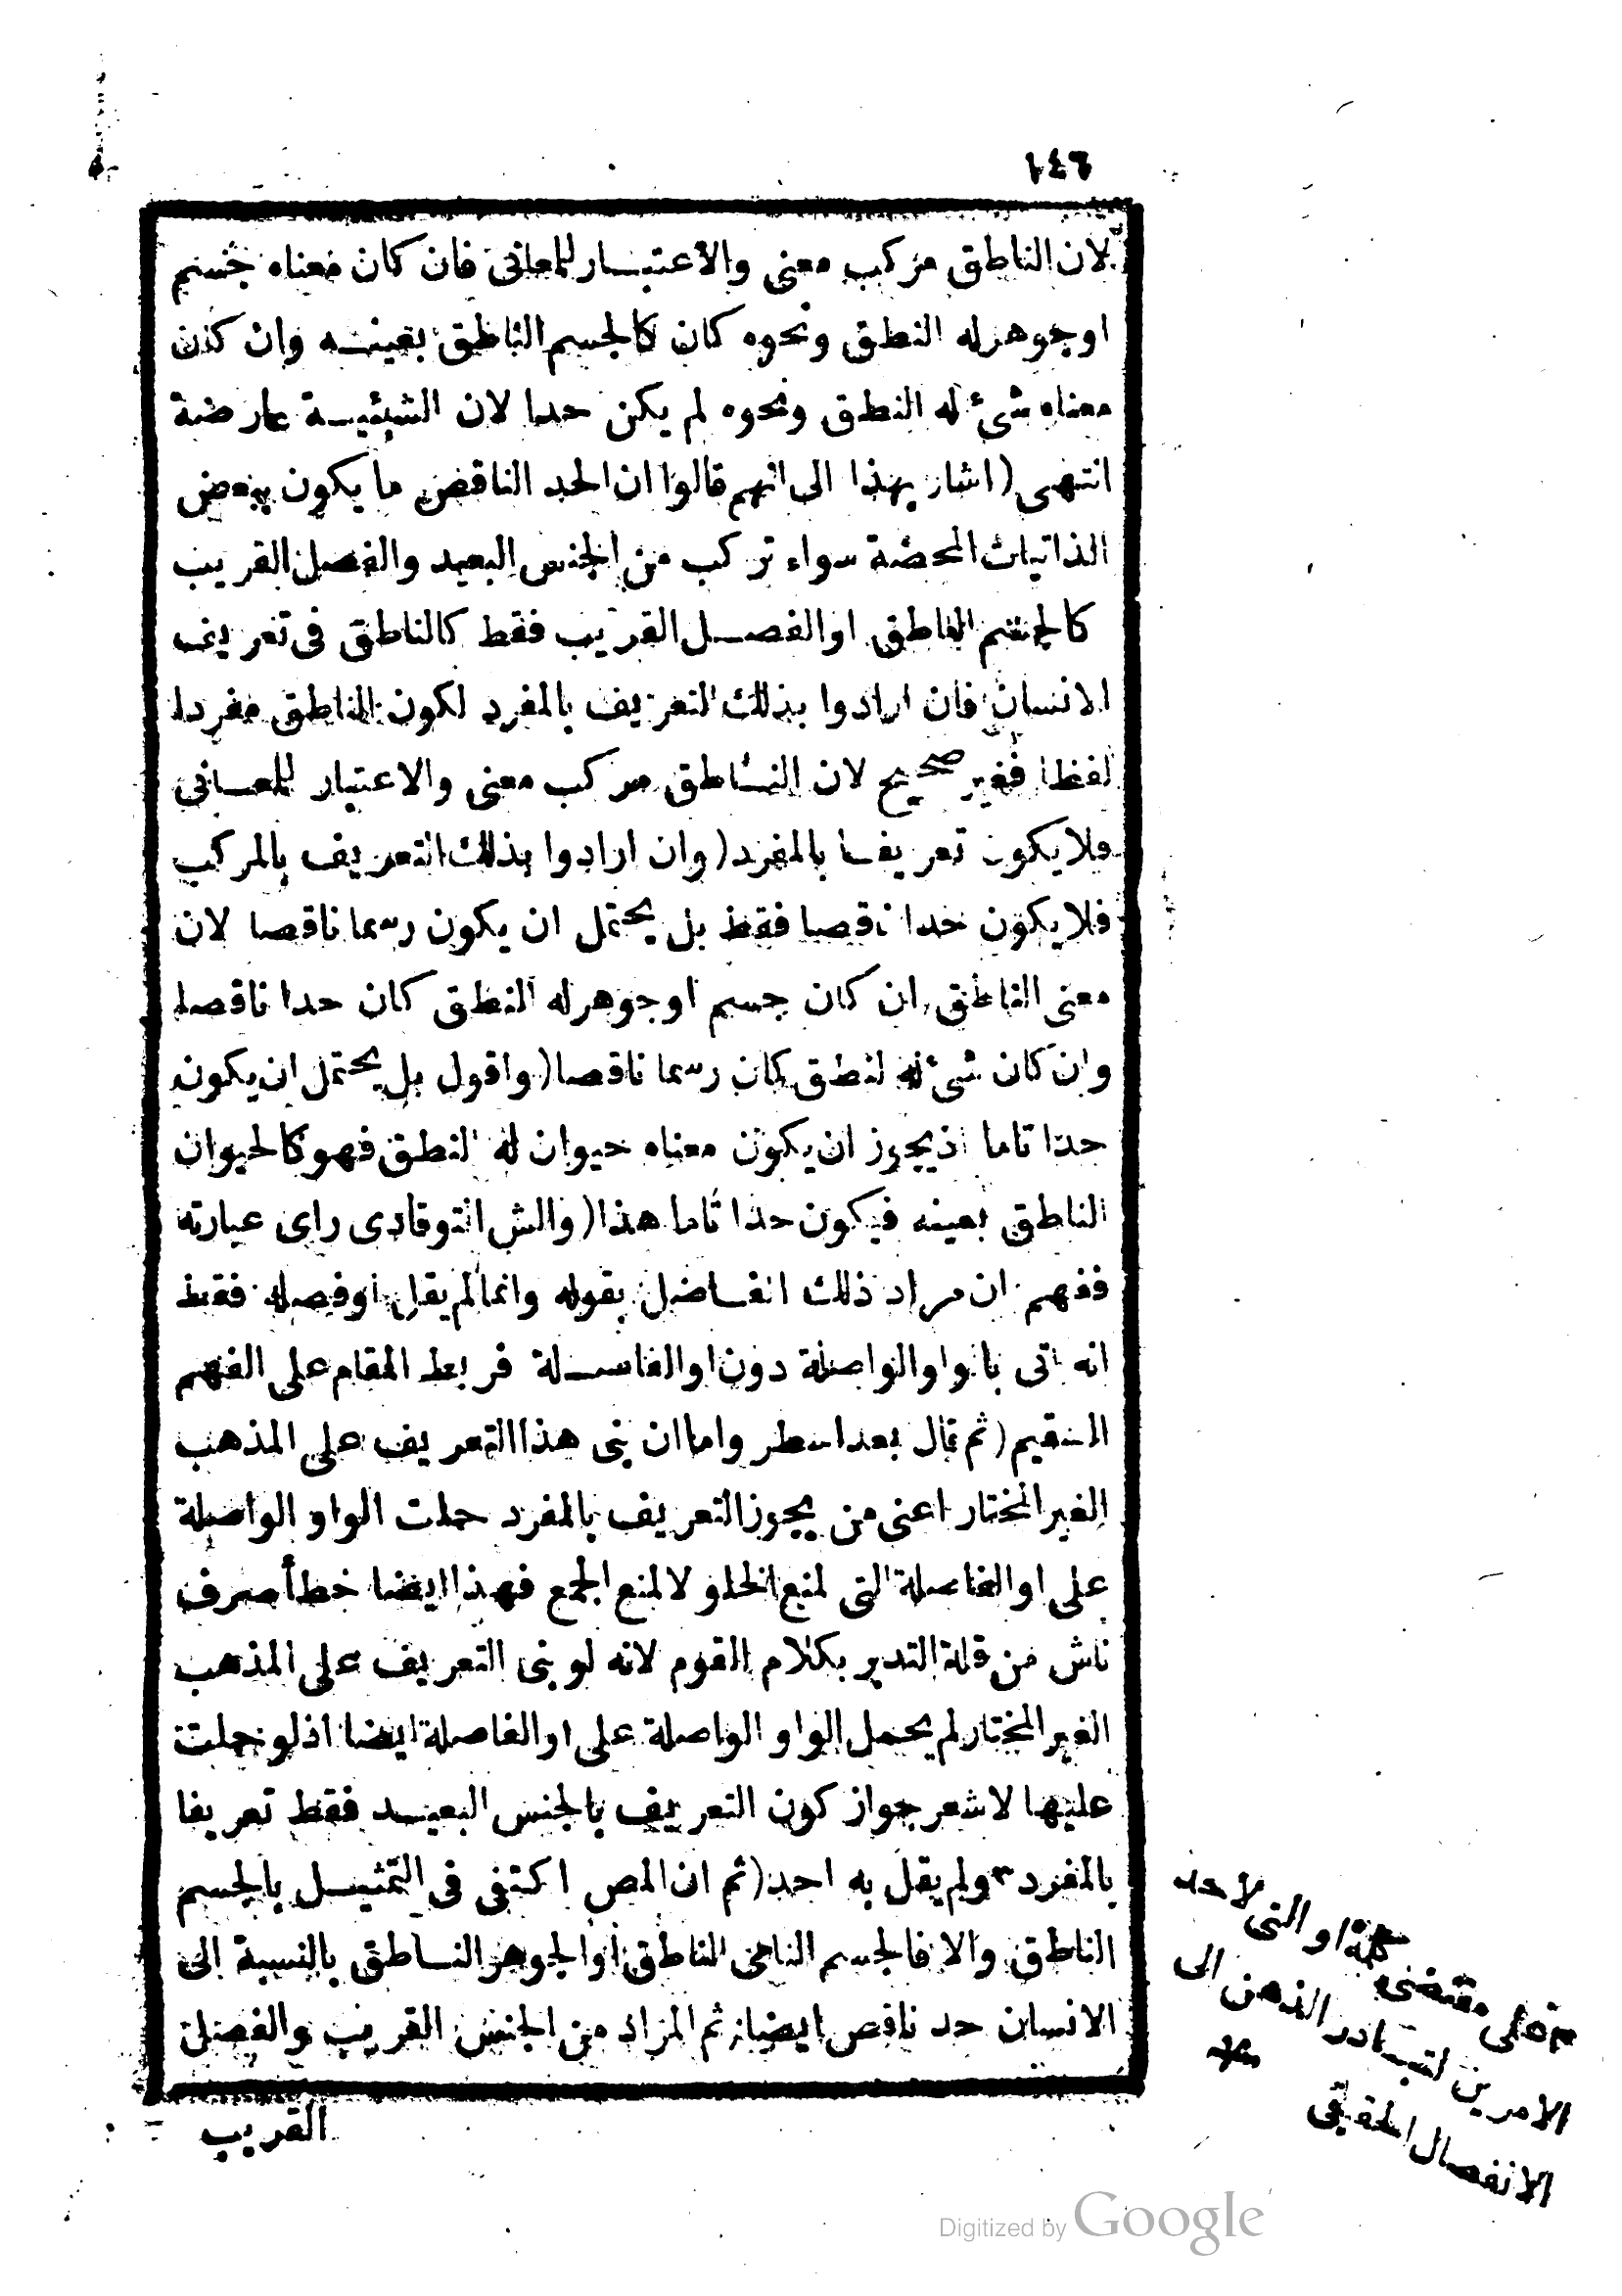 ١٤٦
لان الناطق مركب معنى والاعتبار للمعانى فان كان معناه جسم
او جوهر له النطق ونحوه كان كالجسم الناطق بعينه وان كان
معناه شئ له النطق ونحوه لم يكن حدا لان الشيئية عارضة
انتهى (اشار بهذا الى انهم قالوا ان الحد الناقص ما يكون ببعض
الذاتيات المحضة سواء تركب من الجنس البعيد والفصل القريب
كالجسم الناطق او الفصل القريب فقط كالناطق فى تعريف
الانسان فان ارادوا بذلك التعريف بالمفرد لكون الناطق مفردا
لفظا فغير صحيح لان الناطق مركب معنى والاعتبار للمعانى
فلا يكون تعريفا بالمفرد (وان ارادوا بذلك التعريف بالمركب
فلا يكون حدا ناقصا فقط بل يحتمل ان يكون رسما ناقصا لان
معنى الناطق ان كان جسم او جوهر له النطق كان حدا ناقصا
وان كان شئ له النطق كان رسما ناقصا (واقول بل يحتمل ان يكون
حدا تاما اذ يجوز ان يكون معناه حيوان له النطق فهو كالحيوان
الناطق بعينه فيكون حدا تاما هذا (والش التوقادى راى عبارته
ففهم ان مراد ذلك الفاضل بقوله وانما لم يقل او فصله فقط
انه اتى بالواو الواصلة دون او الفاصلة فربط المقام على الفهم
السقيم (ثم قال بعد اسطر واما ان بنى هذا التعريف على المذهب
الغير المختار اعنى من يجوز التعريف بالمفرد حملت الواو الواصلة
على او الفاصلة التى لمنع الخلو لا لمنع الجمع فهذا ايضا خطأ صرف
ناش من قلة التدبر بكلام القوم لانه لو بنى التعريف على المذهب
الغير المختار لم يحمل الواو الواصلة على او الفاصلة ايضا اذ لو حملت
عليها لاشعر جواز كون التعريف بالجنس البعيد فقط تعريفا
بالمفرد ٣ ولم يقل به احد (ثم ان المص اكتفى فى التمثيل بالجسم
الناطق والا فالجسم النامى الناطق او الجوهر الناطق بالنسبة الى
الانسان حد ناقص ايضا ثم المراد من الجنس القريب والفصل
القريب
٣ على مقتضى كلمة او التى لاحد
الامرين لتبادر الذهن الى
الانفصال الحقيقى
Digitized by Google